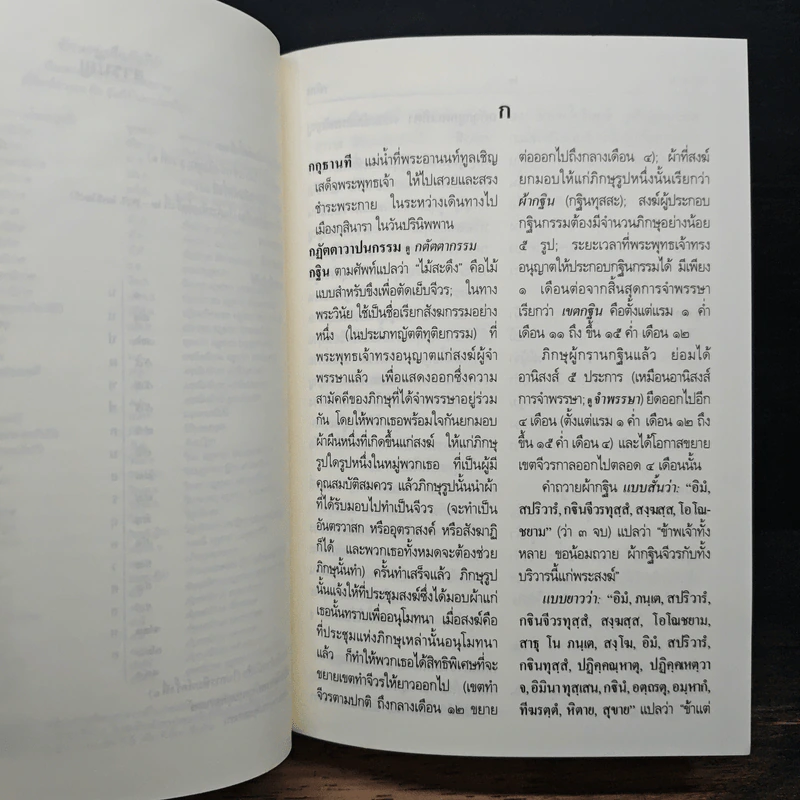 ก
กกุธานที แม่น้ำที่พระอานนท์ทูลเชิญ
เสด็จพระพุทธเจ้า ให้ไปเสวยและสรง
ชำระพระกาย ในระหว่างเดินทางไป
เมืองกุสินารา ในวันปรินิพพาน
กฏัตตาวาปนกรรม ดู กตัตตากรรม
กฐิน ตามศัพท์แปลว่า “ไม้สะดึง” คือไม้
แบบสำหรับขึงเพื่อตัดเย็บจีวร; ในทาง
พระวินัย ใช้เป็นชื่อเรียกสังฆกรรมอย่าง
หนึ่ง (ในประเภทญัตติทุติยกรรม) ที่
พระพุทธเจ้าทรงอนุญาตแก่สงฆ์ผู้จำ
พรรษาแล้ว เพื่อแสดงออกซึ่งความ
สามัคคีของภิกษุที่ได้จำพรรษาอยู่ร่วม
กัน โดยให้พวกเธอพร้อมใจกันยกมอบ
ผ้าผืนหนึ่งที่เกิดขึ้นแก่สงฆ์ ให้แก่ภิกษุ
รูปใดรูปหนึ่งในหมู่พวกเธอ ที่เป็นผู้มี
คุณสมบัติสมควร แล้วภิกษุรูปนั้นนำผ้า
ที่ได้รับมอบไปทำเป็นจีวร (จะทำเป็น
อันตรวาสก หรืออุตราสงค์ หรือสังฆาฏิ
ก็ได้ และพวกเธอทั้งหมดจะต้องช่วย
ภิกษุนั้นทำ) ครั้นทำเสร็จแล้ว ภิกษุรูป
นั้นแจ้งให้ที่ประชุมสงฆ์ซึ่งได้มอบผ้าแก่
เธอนั้นทราบเพื่ออนุโมทนา เมื่อสงฆ์คือ
ที่ประชุมแห่งภิกษุเหล่านั้นอนุโมทนา
แล้ว ก็ทำให้พวกเธอได้สิทธิพิเศษที่จะ
ขยายเขตทำจีวรให้ยาวออกไป (เขตทำ
จีวรตามปกติ ถึงกลางเดือน ๑๒ ขยาย
ต่อออกไปถึงกลางเดือน ๔); ผ้าที่สงฆ์
ยกมอบให้แก่ภิกษุรูปหนึ่งนั้นเรียกว่า
ผ้ากฐิน (กฐินทุสสะ); สงฆ์ผู้ประกอบ
กฐินกรรมต้องมีจำนวนภิกษุอย่างน้อย
๕ รูป; ระยะเวลาที่พระพุทธเจ้าทรง
อนุญาตให้ประกอบกฐินกรรมได้ มีเพียง
๑ เดือนต่อจากสิ้นสุดการจำพรรษา
เรียกว่า เขตกฐิน คือตั้งแต่แรม ๑ ค่ำ
เดือน ๑๑ ถึง ขึ้น ๑๕ ค่ำ เดือน ๑๒
ภิกษุผู้กรานกฐินแล้ว ย่อมได้
อานิสงส์ ๕ ประการ (เหมือนอานิสงส์
การจำพรรษา; ดู จำพรรษา) ยืดออกไปอีก
๔ เดือน (ตั้งแต่แรม ๑ ค่ำ เดือน ๑๒ ถึง
ขึ้น ๑๕ ค่ำ เดือน ๔) และได้โอกาสขยาย
เขตจีวรกาลออกไปตลอด ๔ เดือนนั้น
คำถวายผ้ากฐิน แบบสั้นว่า: “อิมํ,
สปริวารํ, กฐินจีวรทุสฺสํ, สงฺฆสฺส, โอโณ-
ชยาม” (ว่า ๓ จบ) แปลว่า “ข้าพเจ้าทั้ง
หลาย ขอน้อมถวาย ผ้ากฐินจีวรกับทั้ง
บริวารนี้แก่พระสงฆ์”
แบบยาวว่า: “อิมํ, ภนฺเต, สปริวารํ,
กฐินจีวรทุสฺสํ, สงฺฆสฺส, โอโณชยาม,
สาธุ โน ภนฺเต, สงฺโฆ, อิมํ, สปริวารํ,
กฐินทุสฺสํ, ปฏิคฺคณฺหาตุ, ปฏิคฺคเหตฺวา
จ, อิมินา ทุสฺเสน, กฐินํ, อตฺถรตุ, อมฺหากํ,
ทีฆรตฺตํ, หิตาย, สุขาย” แปลว่า “ข้าแต่